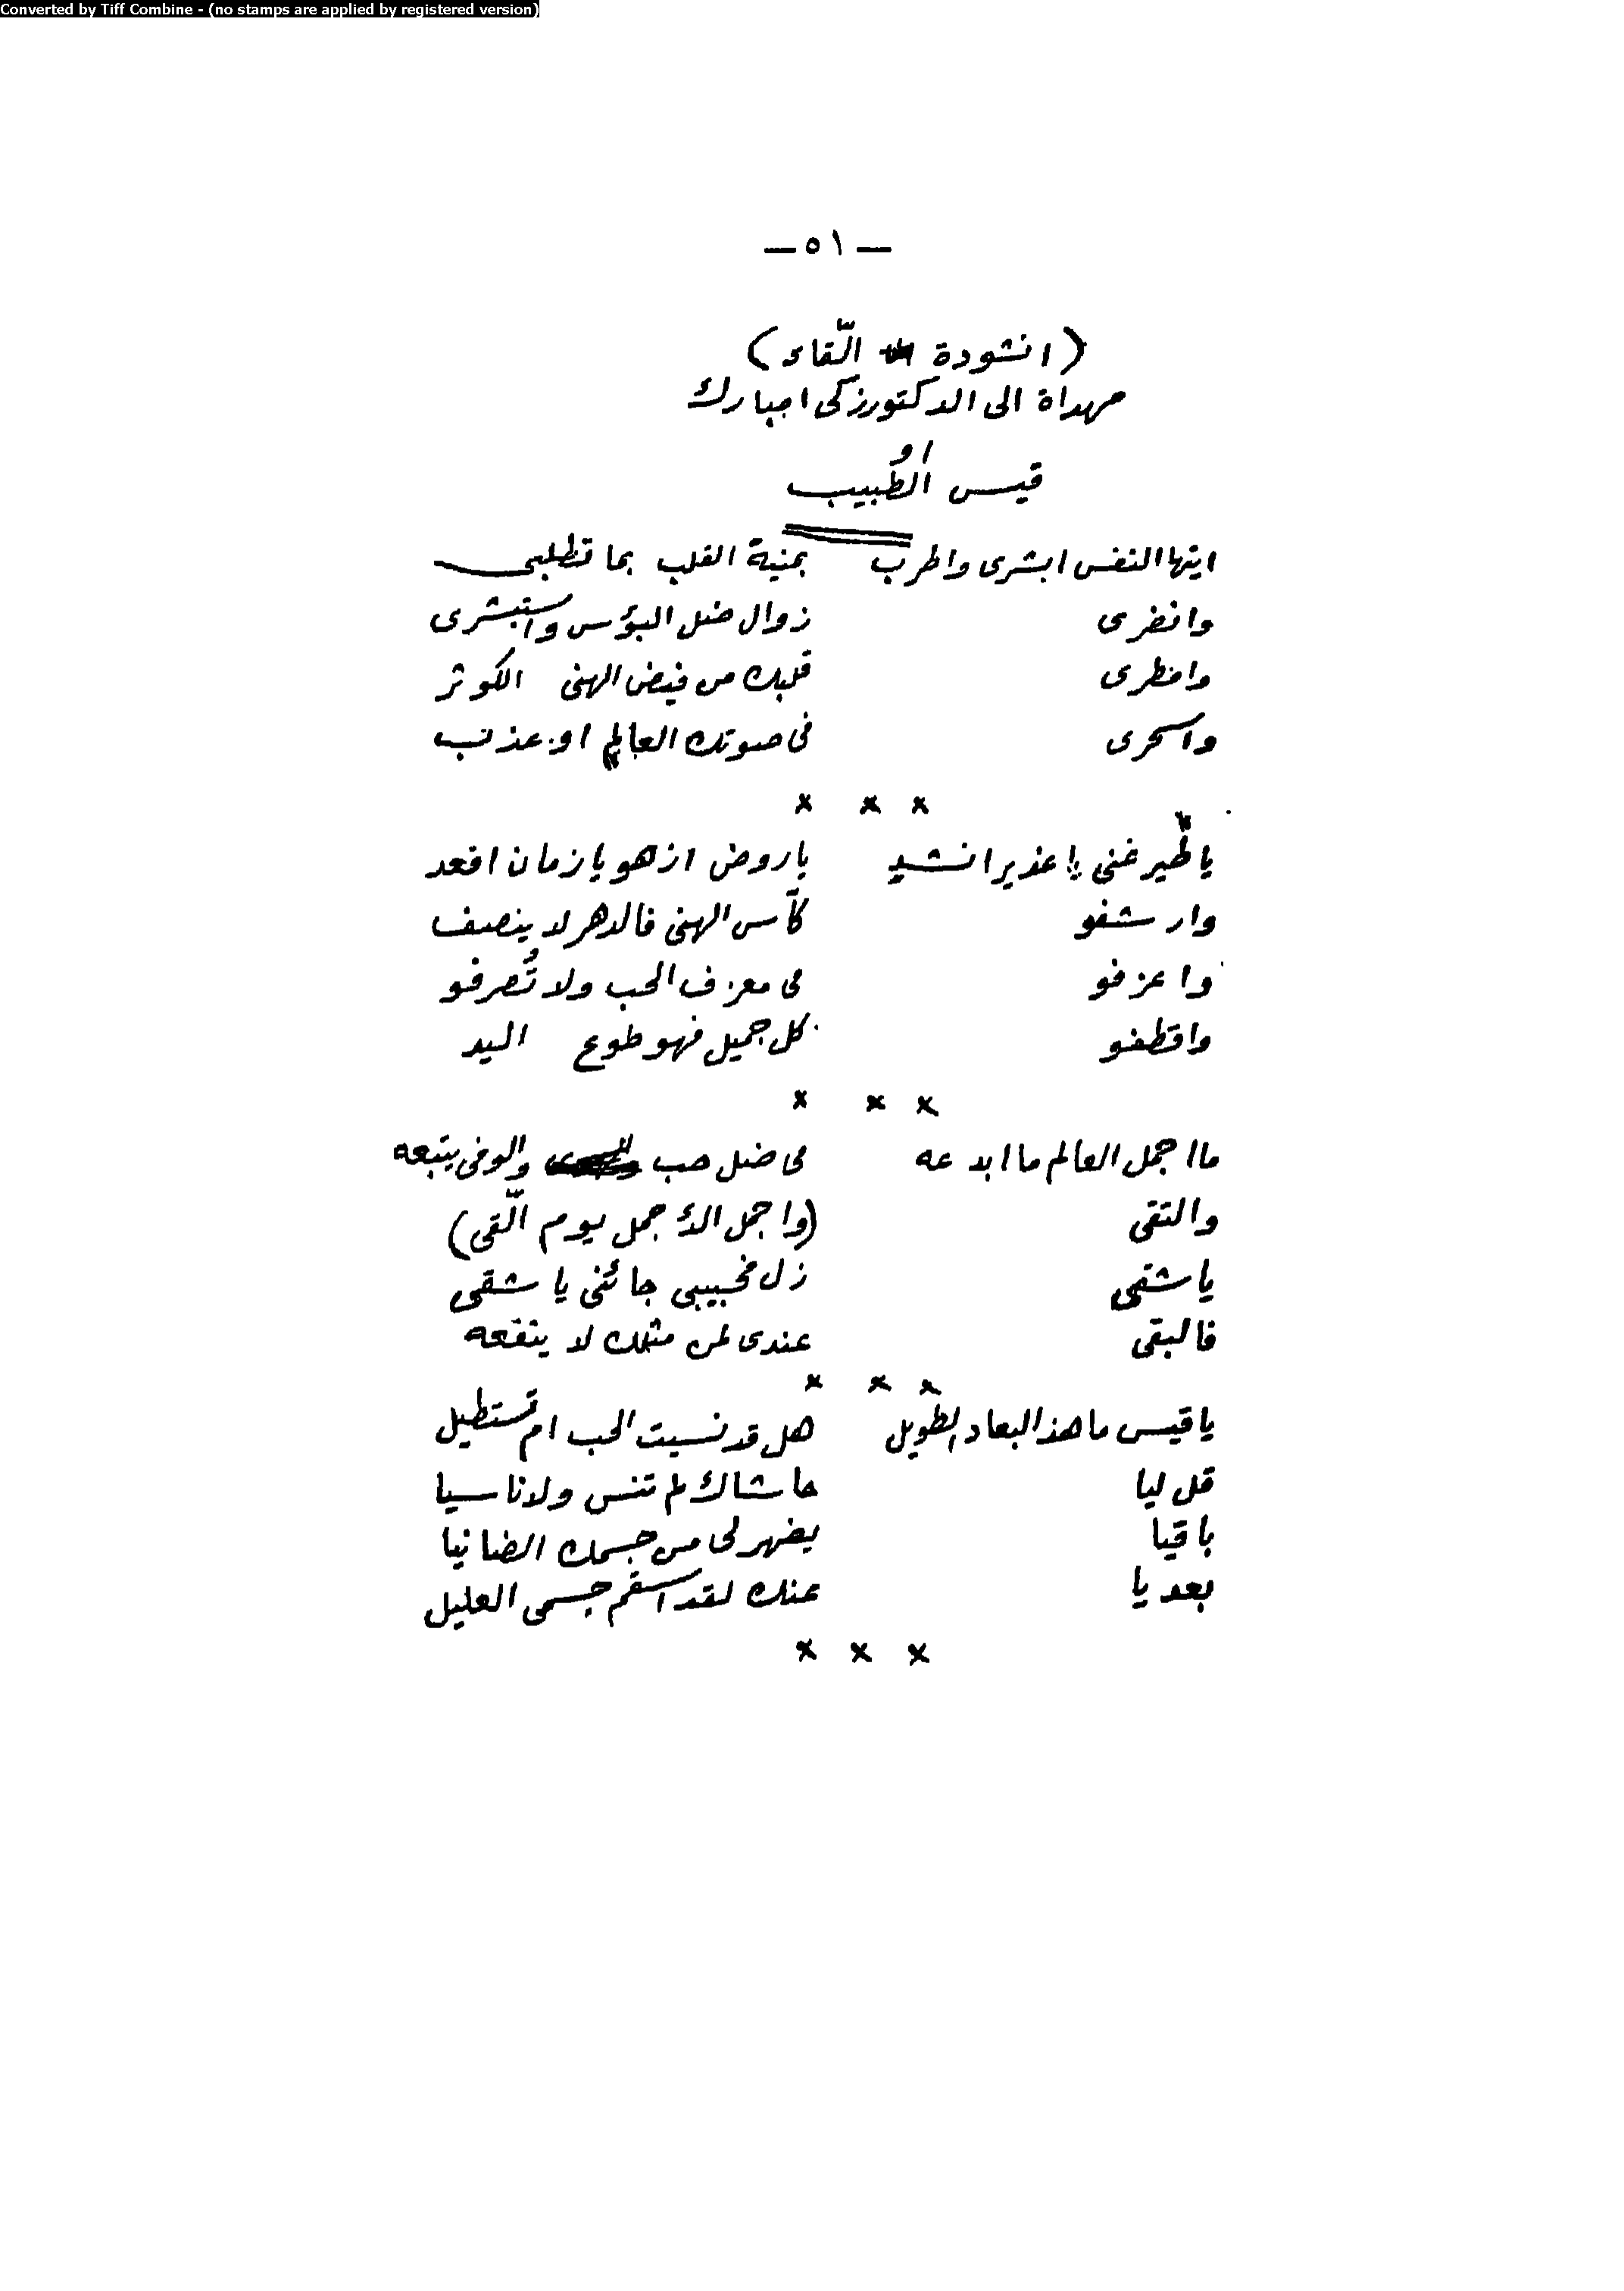 Converted by Tiff Combine - (no stamps are applied by registered version)
— ٥١ —
(انشودة الّقاء)
مهداة الى الدكتور زكى امبارك
او
قيس الطبيب
ايتها النفس ابشرى واطرب بمنية القلب بما تطلبى
وانضرى زوال ضل البؤس واستبشرى
وامطرى قلبك من فيض الهنى الكوثر
واسحرى فى صوتك العالم او عذب
× × ×
يا طّير غنى يا غدير انشد ياروض ازهو يا زمان اقعد
وارشفو كآس الهنى فالدهر لا ينصف
واعزفو فى معزف الحب ولا تُصرفو
واقطفو كل جميل فهو طوع اليد
× × ×
ماا جمل العالم ما ابدعه فى ضل حب والوفى يتبعه
والتقى (واجمل الأجمل يوم الّقى)
يا شقى زل فحبيبى جائنى يا شقى
فالبقى عندى لمن مثلك لا ينفعه
× × ×
يا قيس ما هذ البعاد الطويل هل قد نسيت الحب ام تستطيل
قل ليا حاشاك لم تنس ولا ناسيا
باقيا يضهر لى من جسمك الضانيا
بعد يا عنك لقد اسقم جسمى العليل
× × ×